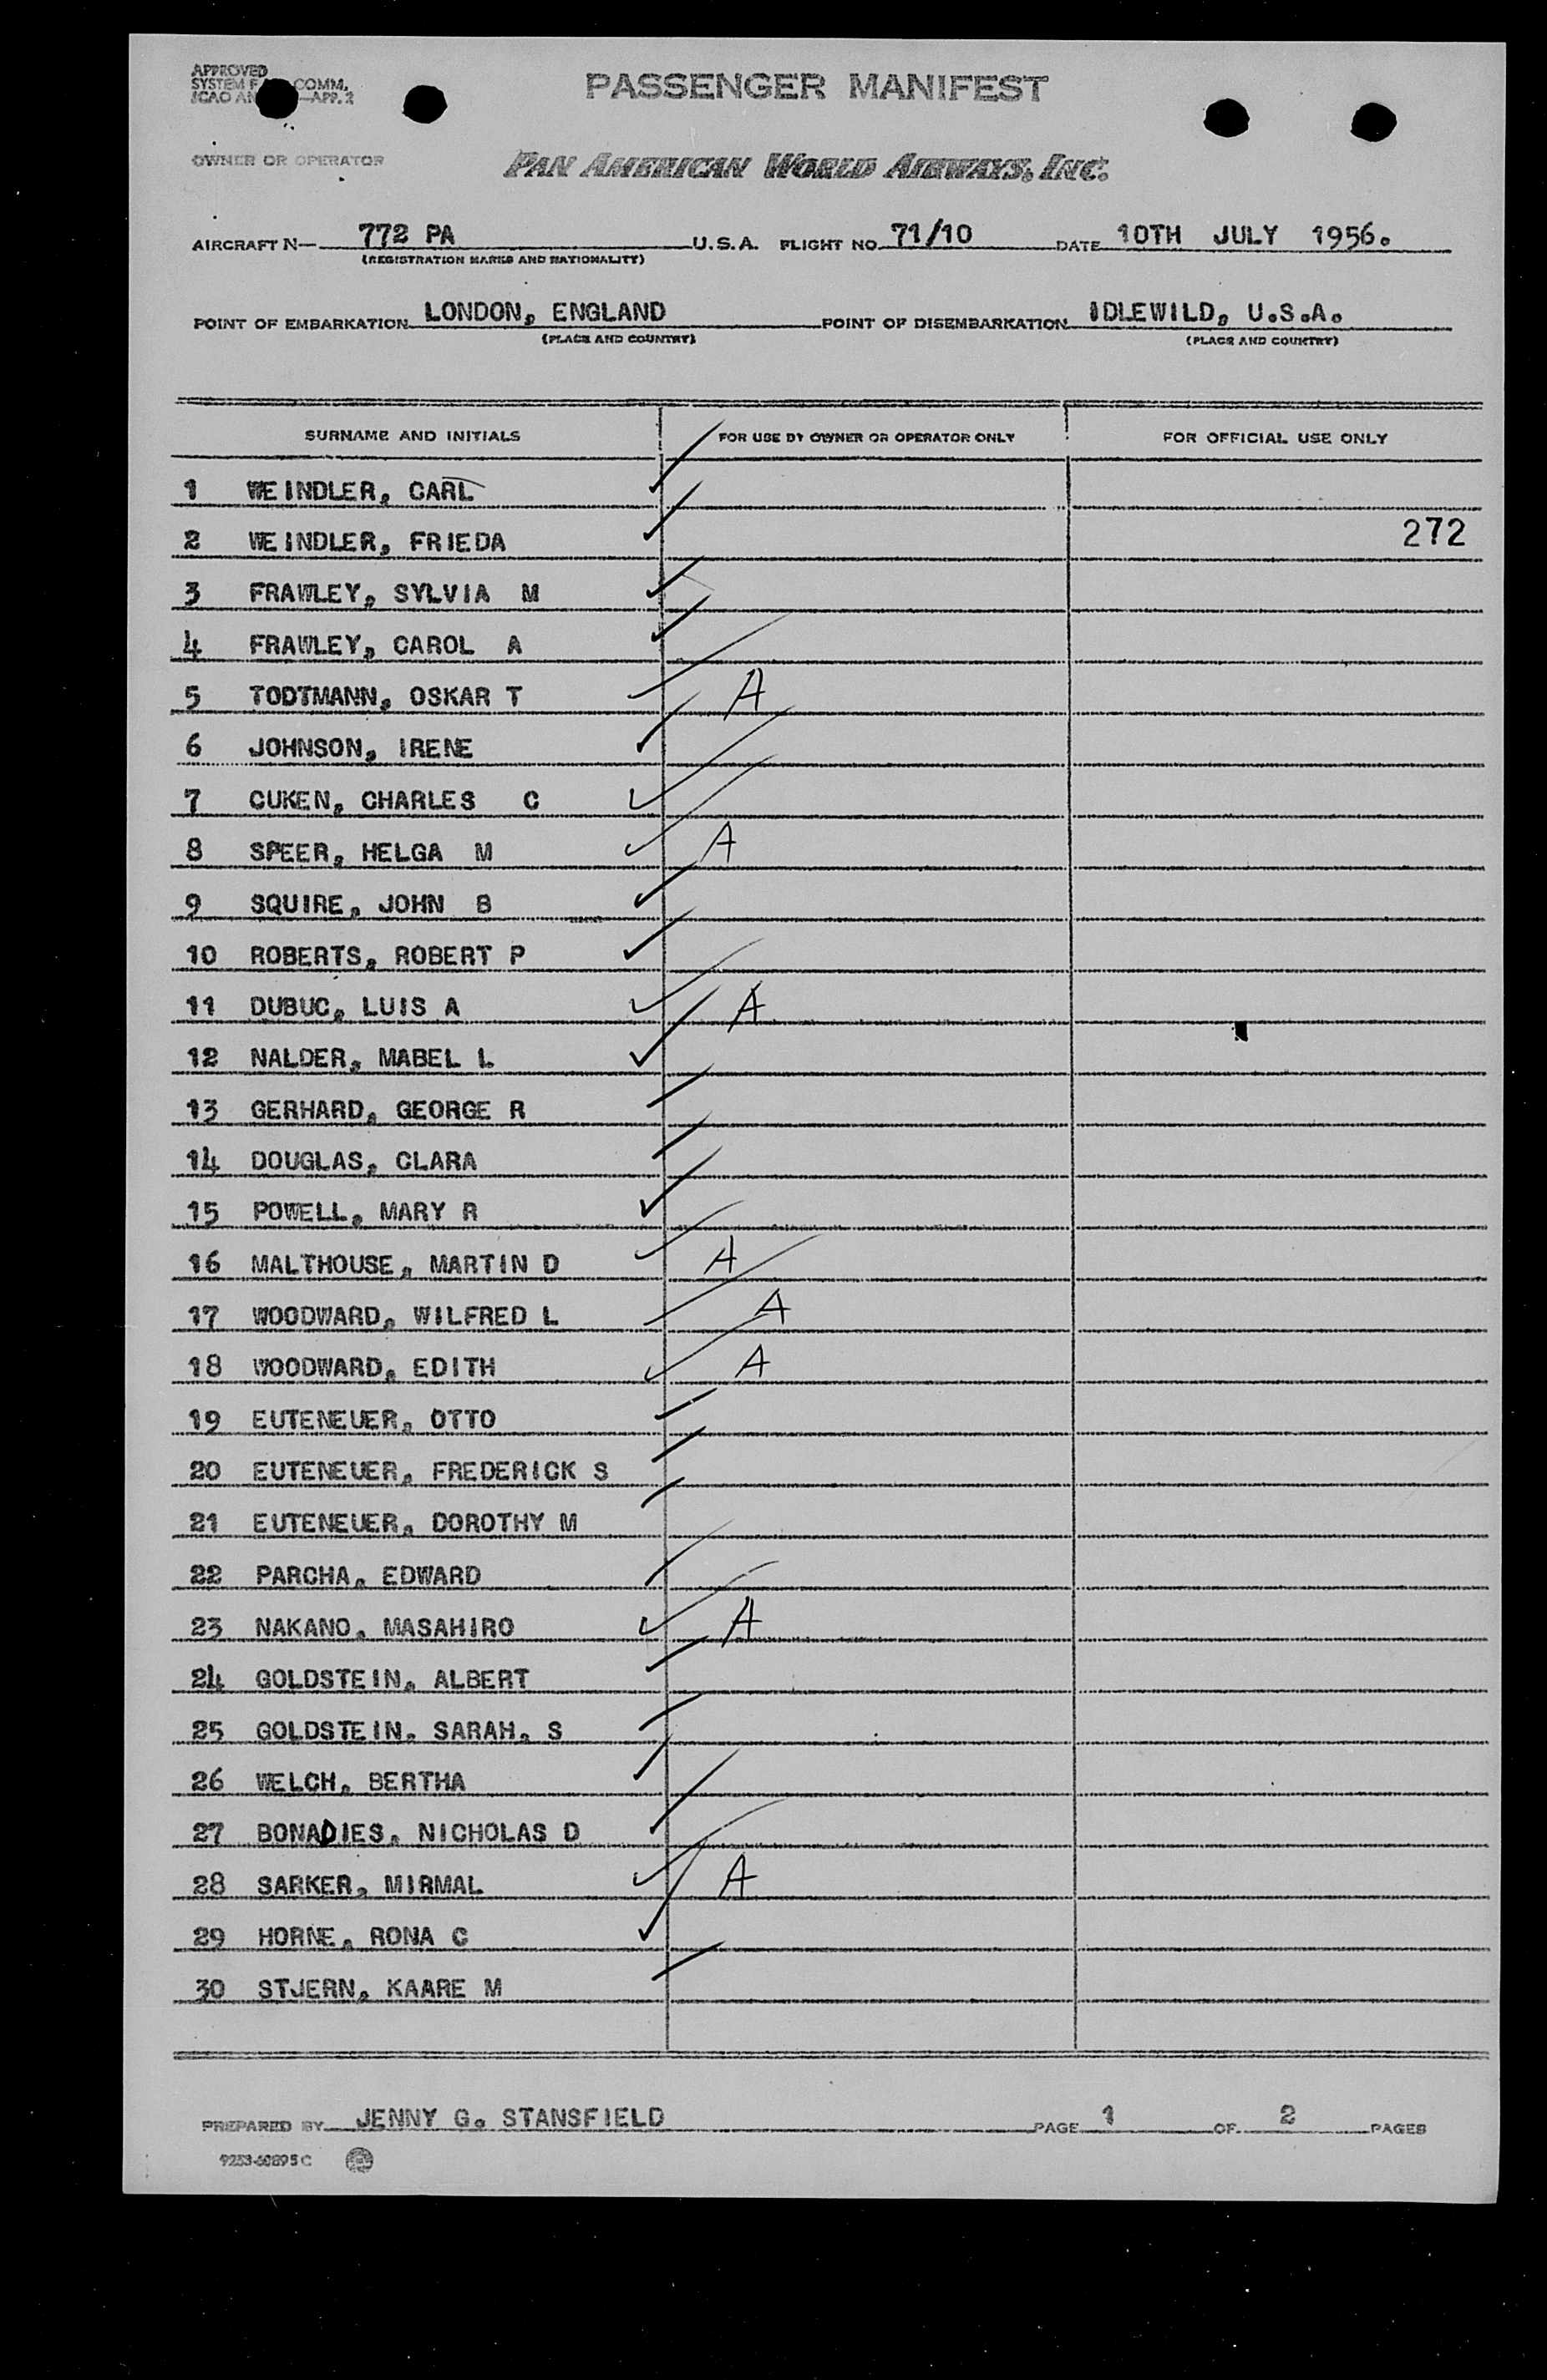 APPROVED
SYSTEM COMM.
ICAO —APP. 2
PASSENGER MANIFEST
OWNER OR OPERATOR
PAN AMERICAN WORLD AIRWAYS, INC.
AIRCRAFT N— 772 PA U.S.A. FLIGHT NO. 71/10 DATE 10TH JULY 1956.
(REGISTRATION MARKS AND NATIONALITY)
POINT OF EMBARKATION LONDON, ENGLAND POINT OF DISEMBARKATION IDLEWILD, U.S.A.
(PLACE AND COUNTRY) (PLACE AND COUNTRY)
SURNAME AND INITIALS FOR USE BY OWNER OR OPERATOR ONLY FOR OFFICIAL USE ONLY
1 WEINDLER, CARL
2 WEINDLER, FRIEDA 272
3 FRAWLEY, SYLVIA M
4 FRAWLEY, CAROL A
5 TODTMANN, OSKAR T A
6 JOHNSON, IRENE
7 CUKEN, CHARLES C
8 SPEER, HELGA M A
9 SQUIRE, JOHN B
10 ROBERTS, ROBERT P
11 DUBUC, LUIS A A
12 NALDER, MABEL L
13 GERHARD, GEORGE R
14 DOUGLAS, CLARA
15 POWELL, MARY R
16 MALTHOUSE, MARTIN D A
17 WOODWARD, WILFRED L A
18 WOODWARD, EDITH A
19 EUTENEUER, OTTO
20 EUTENEUER, FREDERICK S
21 EUTENEUER, DOROTHY M
22 PARCHA, EDWARD
23 NAKANO, MASAHIRO A
24 GOLDSTEIN, ALBERT
25 GOLDSTEIN, SARAH, S
26 WELCH, BERTHA
27 BONADIES, NICHOLAS D
28 SARKER, MIRMAL A
29 HORNE, RONA C
30 STJERN, KAARE M
PREPARED BY JENNY G. STANSFIELD PAGE 1 OF 2 PAGES
9253-60895C